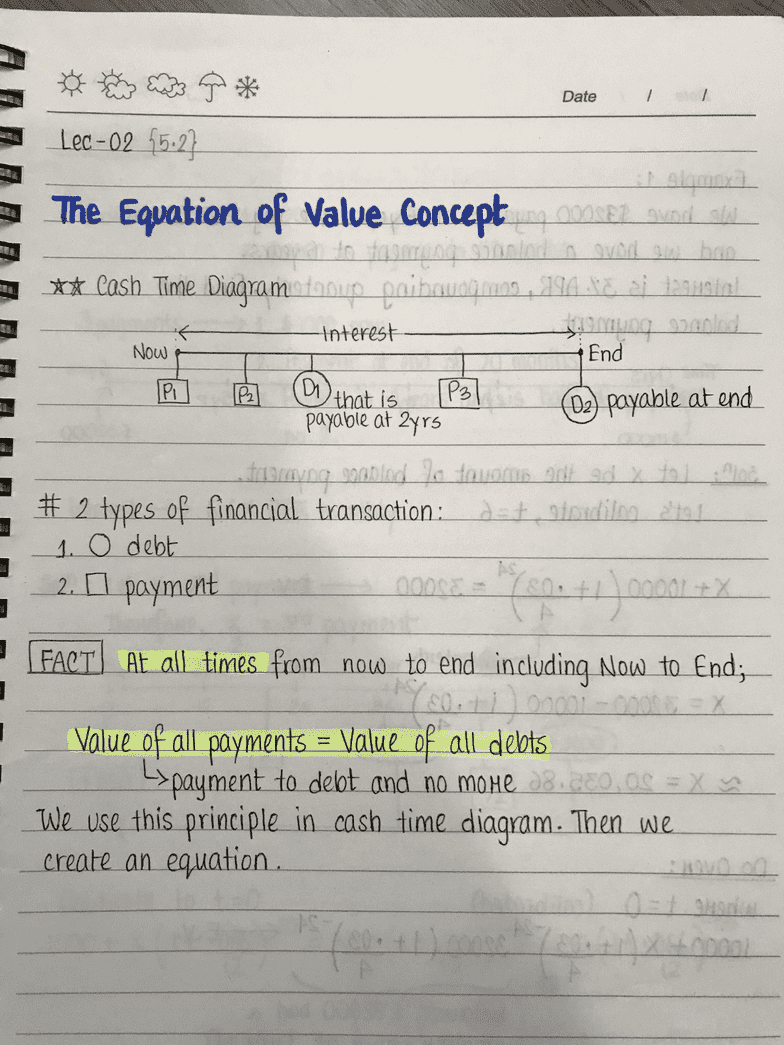 Date / /
Lec-02 {5.2}
The Equation of Value Concept
★★ Cash Time Diagram
Interest
Now End
P1 P2 D1 that is P3 D2 payable at end
payable at 2yrs
# 2 types of financial transaction:
1. ○ debt
2. □ payment
FACT At all times from now to end including Now to End;
Value of all payments = Value of all debts
↳payment to debt and no more
We use this principle in cash time diagram. Then we
create an equation.